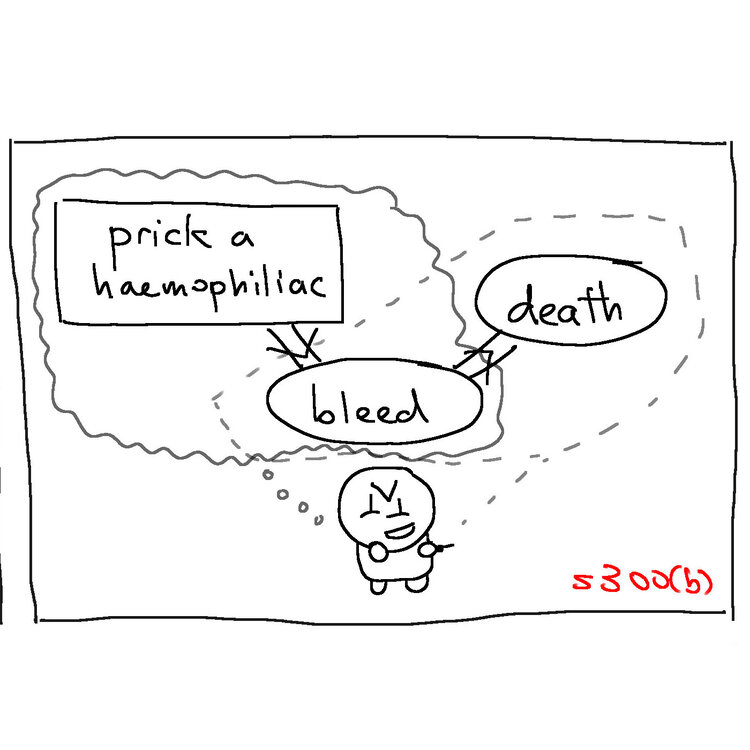 prick a
haemophiliac
death
bleed
s300(b)